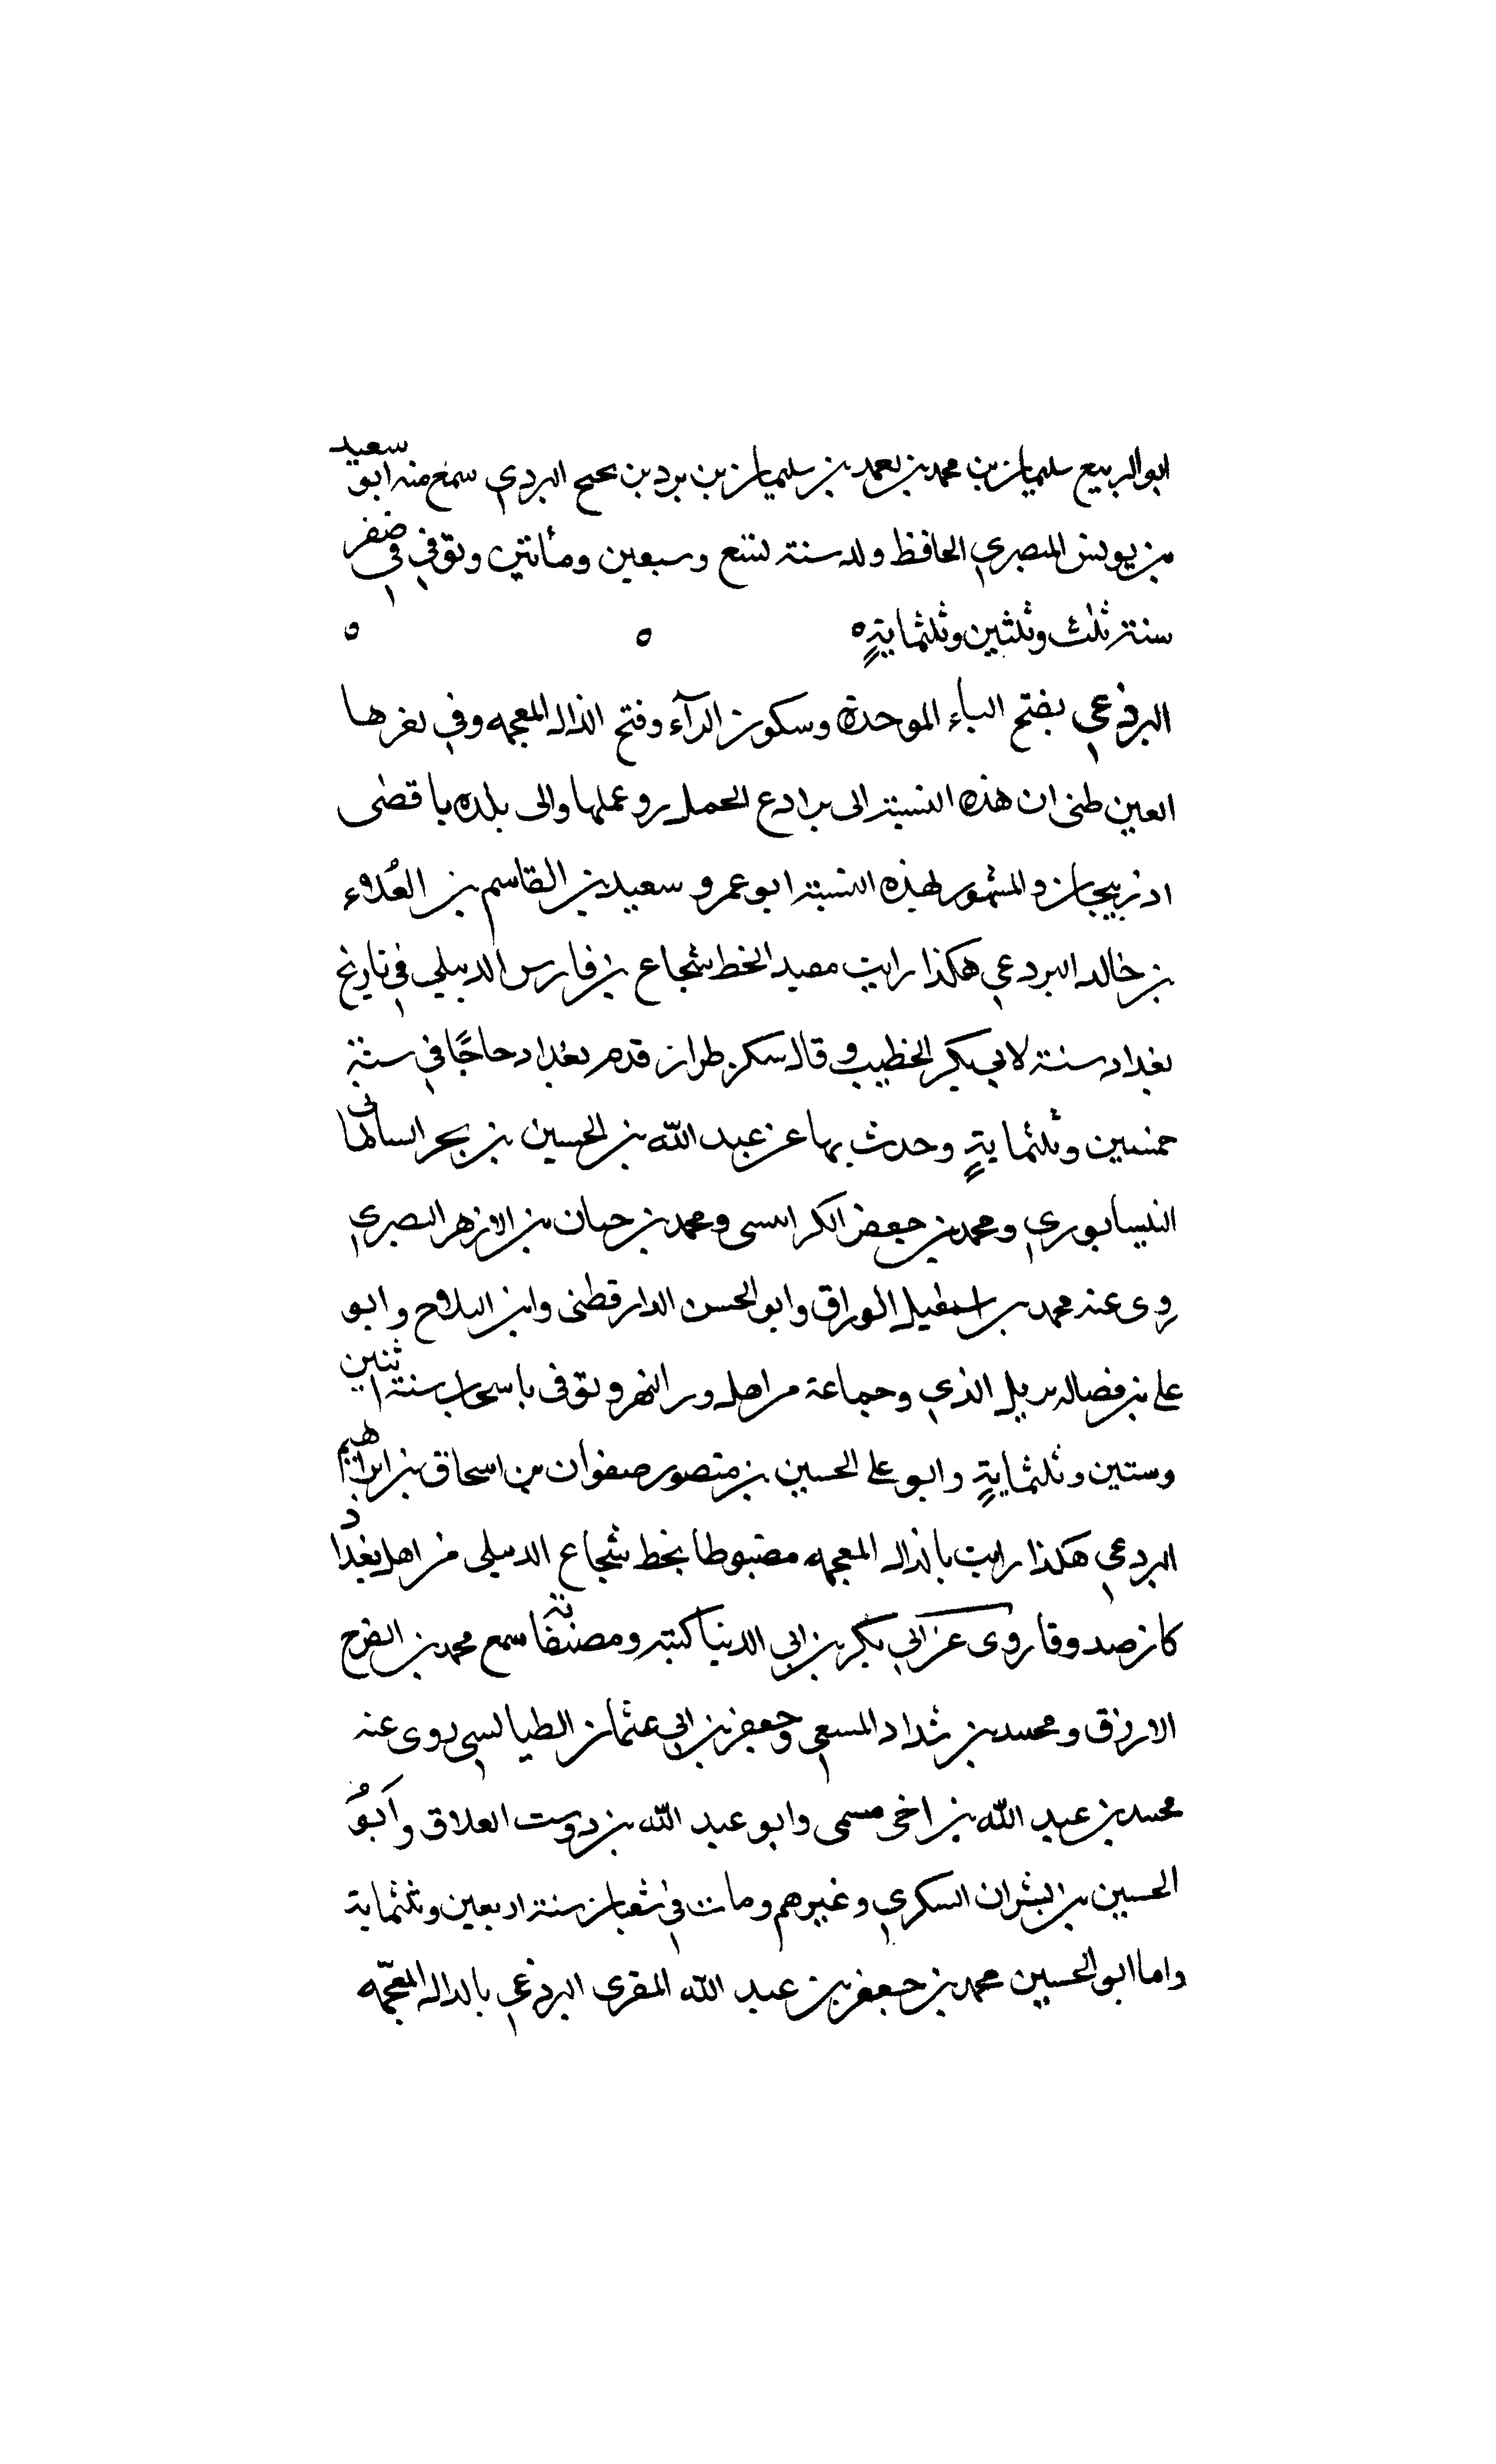 ابو الربيع سليمان بن محمد بن يعمد بن سليمان بن برد بن نجيح البردي سمع منه ابو سعيد
بن يونس المصري الحافظ ولد سنة تسع وسبعين ومأتين وتوفي في صفر
سنة ثلث وثلثين وثلثماية ه ه ه
البرذعي بفتح الباء الموحدة وسكون الرآء وفتح الذال المعجمه وفي اخرها
العين ظني ان هذه النسبة الى براذع الحمير وعملها والى بلده باقصى
اذربيجان والمشهور بهذه النسبة ابو عمرو سعيد بن القاسم بن العلاء
بن خالد البردعي هكذا رايت مقيد الخط شجاع بن فارس الدهلي في تاريخ
بغداد سنة لابي بكر الخطيب وقال سكن طراز قدم بغداد حاجًا في سنة
خمسين وثلثماية وحدث بها عن عبد الله بن الحسين بن بحر السالماني
النيسابوري ومحمد بن جعفر الكرابيسى ومحمد بن حبان بن الازهر البصري
روى عنه محمد بن اسمعيل الوراق وابو الحسن الدارقطنى وابن البلاح وابو
على بن فضاله الذي وجماعة من اهل ورا النهر وتوفى باسحاب سنة اثنين
وستين وثلثماية وابو على الحسين بن منصور صفوان بن اسحاق بن ابراهيم
البردعي هكذا رايت بالذال المعجمه مضبوطا بخط شجاع الدهلى من اهل بغداد
كان صدوقا روى عن ابي بكر بن ابي الدنيا كتبه ومصنفاته سمع محمد بن الفرج
الازرق ومحمد بن شداد المسمعي وجعفر بن ابي عثمان الطيالسي روى عنه
محمد بن عبد الله بن اخى ميمى وابو عبد الله بن دوست العلاق وابو
الحسين بن البشران السكري وغيرهم ومات في شعبان سنة اربعين وثلثماية
واما ابو الحسين محمد بن جعفر بن عبد الله المقرى البرذعي بالدال المعجمه